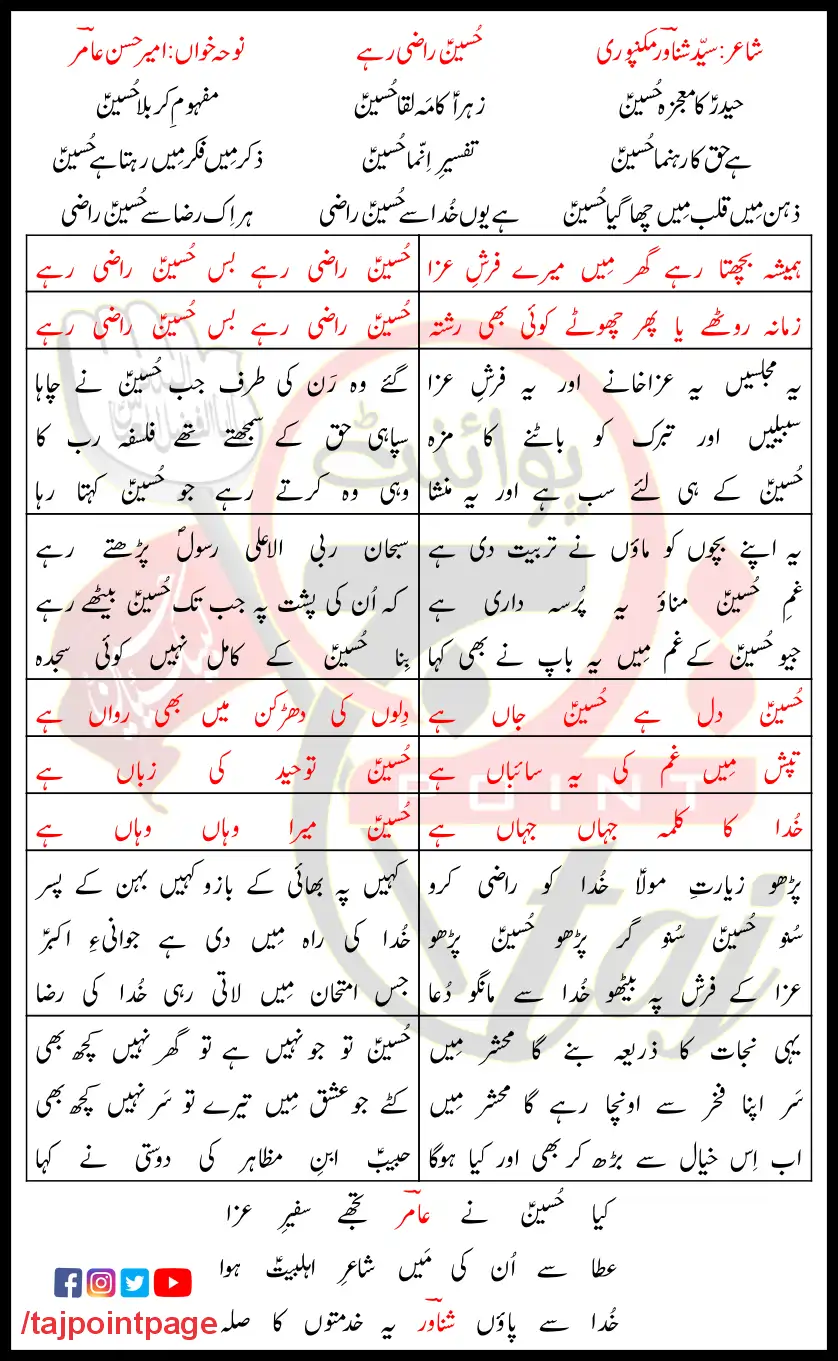 شاعر: سیّد شناورؔ مکنپوری حُسینؑ راضی رہے نوحہ خواں: امیر حسن عامرؔ
حیدرؑ کا معجزہ حُسینؑ زہراؑ کا مَہ لقا حُسینؑ مفہومِ کربلا حُسینؑ
ہے حق کا رہنما حُسینؑ تفسیرِ اِنّما حُسینؑ ذکر مِیں فکر مِیں رہتا ہے حُسینؑ
ذہن مِیں قلب مِیں چھا گیا حُسینؑ ہے یوں خُدا سے حُسینؑ راضی ہر اِک رضا سے حُسینؑ راضی
ہمیشہ بچھتا رہے گھر مِیں میرے فرشِ عزا حُسینؑ راضی رہے بس حُسینؑ راضی رہے
زمانہ روٹھے یا پھر چھوٹے کوئی بھی رشتہ حُسینؑ راضی رہے بس حُسینؑ راضی رہے
یہ مجلسیں یہ عزاخانے اور یہ فرشِ عزا گئے وہ رَن کی طرف جب حُسینؑ نے چاہا
سبیلیں اور تبرک کو باٹنے کا مزہ سپاہی حق کے سمجھتے تھے فلسفہ رب کا
حُسینؑ کے ہی لئے سب ہے اور یہ منشا وہی وہ کرتے رہے جو حُسینؑ کہتا رہا
یہ اپنے بچوں کو ماؤں نے تربیت دی ہے سبحان ربی الاعلی رسولؐ پڑھتے رہے
غمِ حُسینؑ مناؤ یہ پُرسہ داری ہے کہ اُن کی پشت پہ جب تک حُسینؑ بیٹھے رہے
جیو حُسینؑ کے غم مِیں یہ باپ نے بھی کہا بِنا حُسینؑ کے کامل نہیں کوئی سجدہ
حُسینؑ دل ہے حُسینؑ جاں ہے دِلوں کی دھڑکن میں بھی رواں ہے
تپش مِیں غم کی یہ سائباں ہے حُسینؑ توحید کی زباں ہے
خُدا کا کلمہ جہاں جہاں ہے حُسینؑ میرا وہاں وہاں ہے
پڑھو زیارتِ مولاؑ خُدا کو راضی کرو کہیں پہ بھائی کے بازو کہیں بہن کے پسر
سُنو حُسینؑ سُنو گر پڑھو حُسینؑ پڑھو خُدا کی راہ مِیں دی ہے جوانیِء اکبرؑ
عزا کے فرش پہ بیٹھو خُدا سے مانگو دُعا جس امتحان مِیں لاتی رہی خُدا کی رضا
یہی نجات کا ذریعہ بنے گا محشر مِیں حُسینؑ تو جو نہیں ہے تو گھر نہیں کچھ بھی
سَر اپنا فخر سے اونچا رہے گا محشر مِیں کٹے جو عشق مِیں تیرے تو سَر نہیں کچھ بھی
اب اِس خیال سے بڑھ کر بھی اور کیا ہوگا حبیبؑ ابنِ مظاہر کی دوستی نے کہا
کیا حُسینؑ نے عامرؔ تجھے سفیرِ عزا
عطا سے اُن کی مَیں شاعرِ اہلبیتؑ ہوا
خُدا سے پاؤں شناورؔ یہ خدمتوں کا صلہ
/tajpointpage
پوائنٹ
POINT
taj